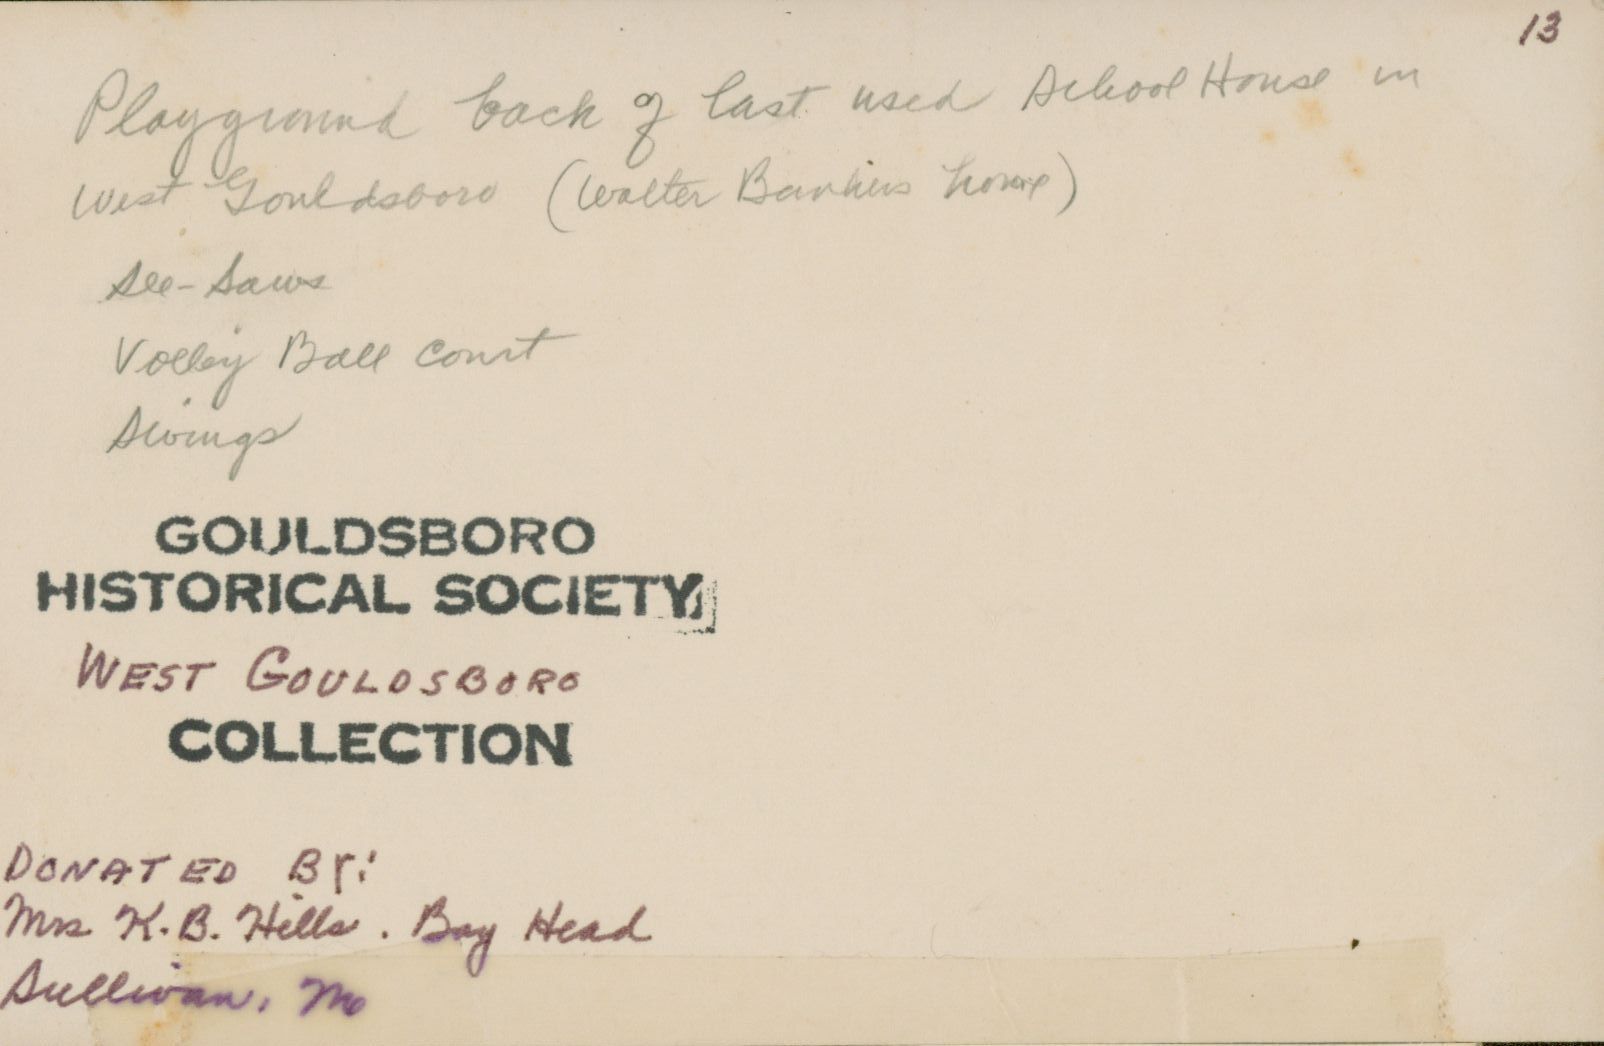 13
Playground back of last used School House in
West Gouldsboro (Walter home)
See-Saws
Volley Ball Court
Swings
GOULDSBORO
HISTORICAL SOCIETY
WEST GOULDSBORO
COLLECTION
DONATED BY:
Mrs K. B. Hills. Bay Head
Sullivan, Me